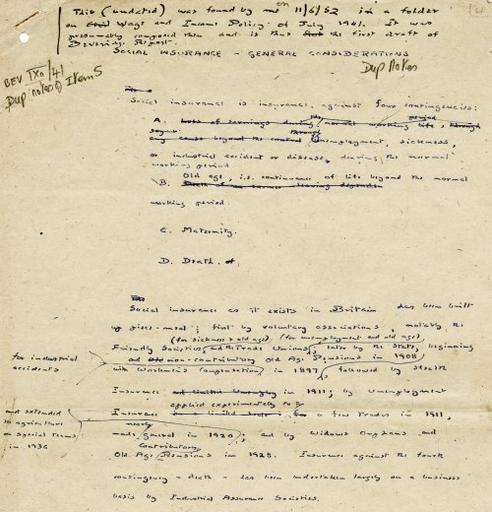 This (undated) was found by me on 11/6/52 in a folder
on Wage and Income Policy of July 1941. It was
presumably composed then and is thus the first draft of
Beveridge Report.
SOCIAL INSURANCE - GENERAL CONSIDERATIONS
BEV IXa/41
Dup notes Item 5
Dup Notes
Social insurance is insurance against four contingencies:
A. Loss of earnings during normal working life, through
any cause beyond the control Unemployment, sickness,
or industrial accident or disease, during the normal
working period
Old age, i.e. continuance of life beyond the normal
B.
working period.
C. Maternity.
D. Death.
Social insurance as it exists in Britain has been built
up piece-meal; first by voluntary associations, notably, the
(for sickness & old age) (for unemployment and old age)
Friendly Societies, and the Trade Unions, later by the State, beginning
non-contributory Old Age Pensions in 1908
for industrial
accidents
with Workmen's Compensation, in 1897, followed by Health
Insurance in 1911; by Unemployment
applied experimentally to
Insurance a few trades in 1911,
and extended
to agriculture
on special terms
in 1936
made general in 1920, and by Widows Orphans and
Contributory
Old Age Pensions in 1925. Insurance against the fourth
contingency - death - has been undertaken largely on a business
basis by Industrial Assurance Societies.